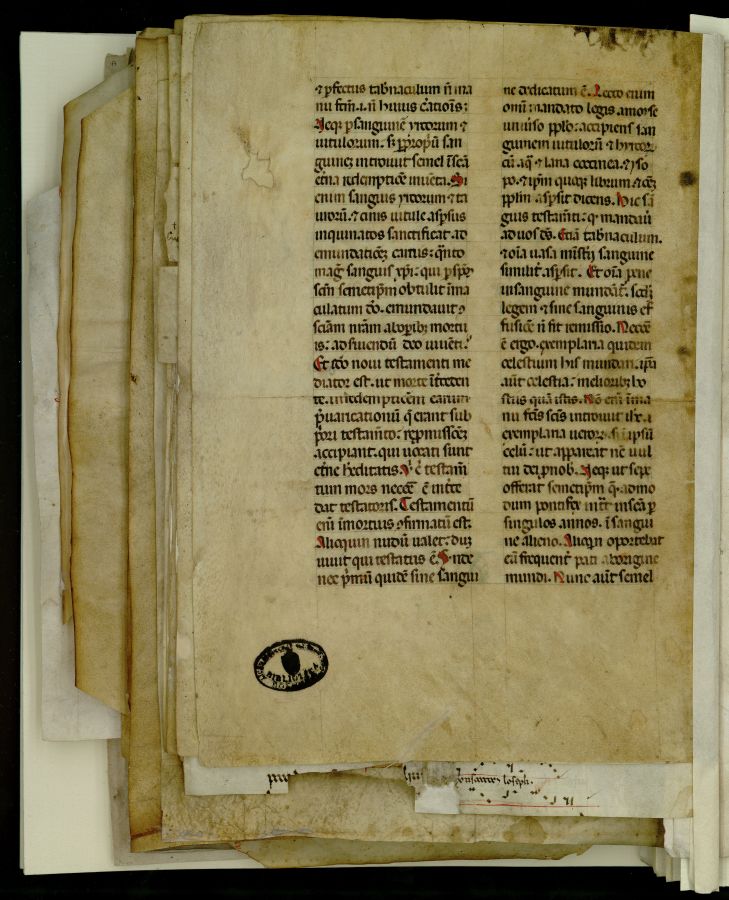 ⁊ ꝑfectius tab̄naculum n̄ ma
nu fc̄m .i. n̄ huius c̄ationis:
Neqꝫ ꝑ sanguinē yrcorum ⁊
uitulorum. sꝫ ꝑ propͥū san
guineꝫ introiuit semel ī sc̄ā
et̄na redemptiōe inuēta. Si
enim sanguis yrcorum ⁊ ta
urorū. ⁊ cinis uitule aspsus
inquinatos sanctificat ad
emundationeꝫ carnis: qͣnto
maḡ sanguis xp̄i: qui ꝑ sp̄m
sc̄m semetip̄m obtulit īma
culatum dō. emundauit ↄ
sciam n̄ram ab opibꝫ mortu
is: ad s̄uiendū deo uiuēti.
Et iō noui testamenti me
diator est. ut morte īt̄ceden
te. in redemptiōem earum
p̄uaricationū q̄ erant sub
p̄ori testam̄to: rep̄missioneꝫ
accipiant. qui uocati sunt
et̄ne h̄editatis. Vͥ ē testam̄
tum mors necē ē int̄ce
dat testatoris. Testamentū
enī ī mortuis ↄfirmatū est.
Alioquin nundū ualet: dum
uiuit qui testatus ē. Unde
nec pͥmū quidē sine sangui
ne dedicatum ē. Lecto enim
omī mandato legis a moyse
uniuso pplo: accipiens san
guinem uitulorū ⁊ hyrcorꝫ
cū aqͣ ⁊ lana coccinea ⁊ yso
po. ⁊ ip̄m quoqꝫ librum ⁊ oēꝫ
pplm aspsit dicens. Hic sā
guis testam̄ti: qͦ mandauͥ
ad uos ds̄. Etiā tab̄naculum.
⁊ oīa uasa mīst̄ij sanguine
similit̄ aspsit. Et oīa pene
in sanguine mundāt̄. scd̄ꝫ
legem ⁊ sine sanguinis ef
fusiōe n̄ fit remissio. Necē
ē ergo. exemplaria quidem
celestium his mundari. ip̄a
aūt celestia: melioribꝫ ho
stiis quā istis. Nō eī ī ma
nu fc̄is sc̄is introiuit ih̄c. i
exemplaria ueroꝝ. s; ī ipsū
celū: ut appareat nc̄ uul
tui dei ꝓ nob. Neqꝫ ut sepe
offerat semetip̄m q̄admo
dum pontifex int̄t in sc̄a ꝑ
singulos annos. ī sangui
ne alieno. Alioqn oportebat
eū frequent̄ pati ab origine
mundi. Nunc aūt semel
BIBLIOTEKA
Ioseph.